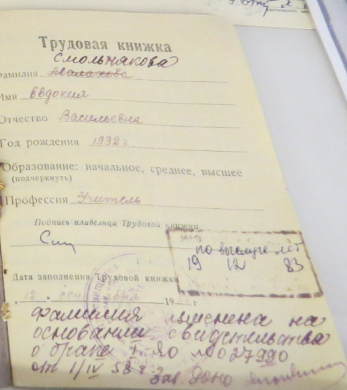 Трудовая книжка
Смольнякова
Фамилия Авалакова
Имя Евдокия
Отчество Васильевна
Год рождения 1932 г
Образование: начальное, среднее, высшее
(подчеркнуть)
Профессия Учитель
Подпись владельца Трудовой книжки
по выслуге лет
19 12 83
Дата заполнения Трудовой книжки
12 сентября
Фамилия изменена на
основании свидетельства
о браке I-ЯО № 027990
от 1/IV 58 г. Зав. ДОНО